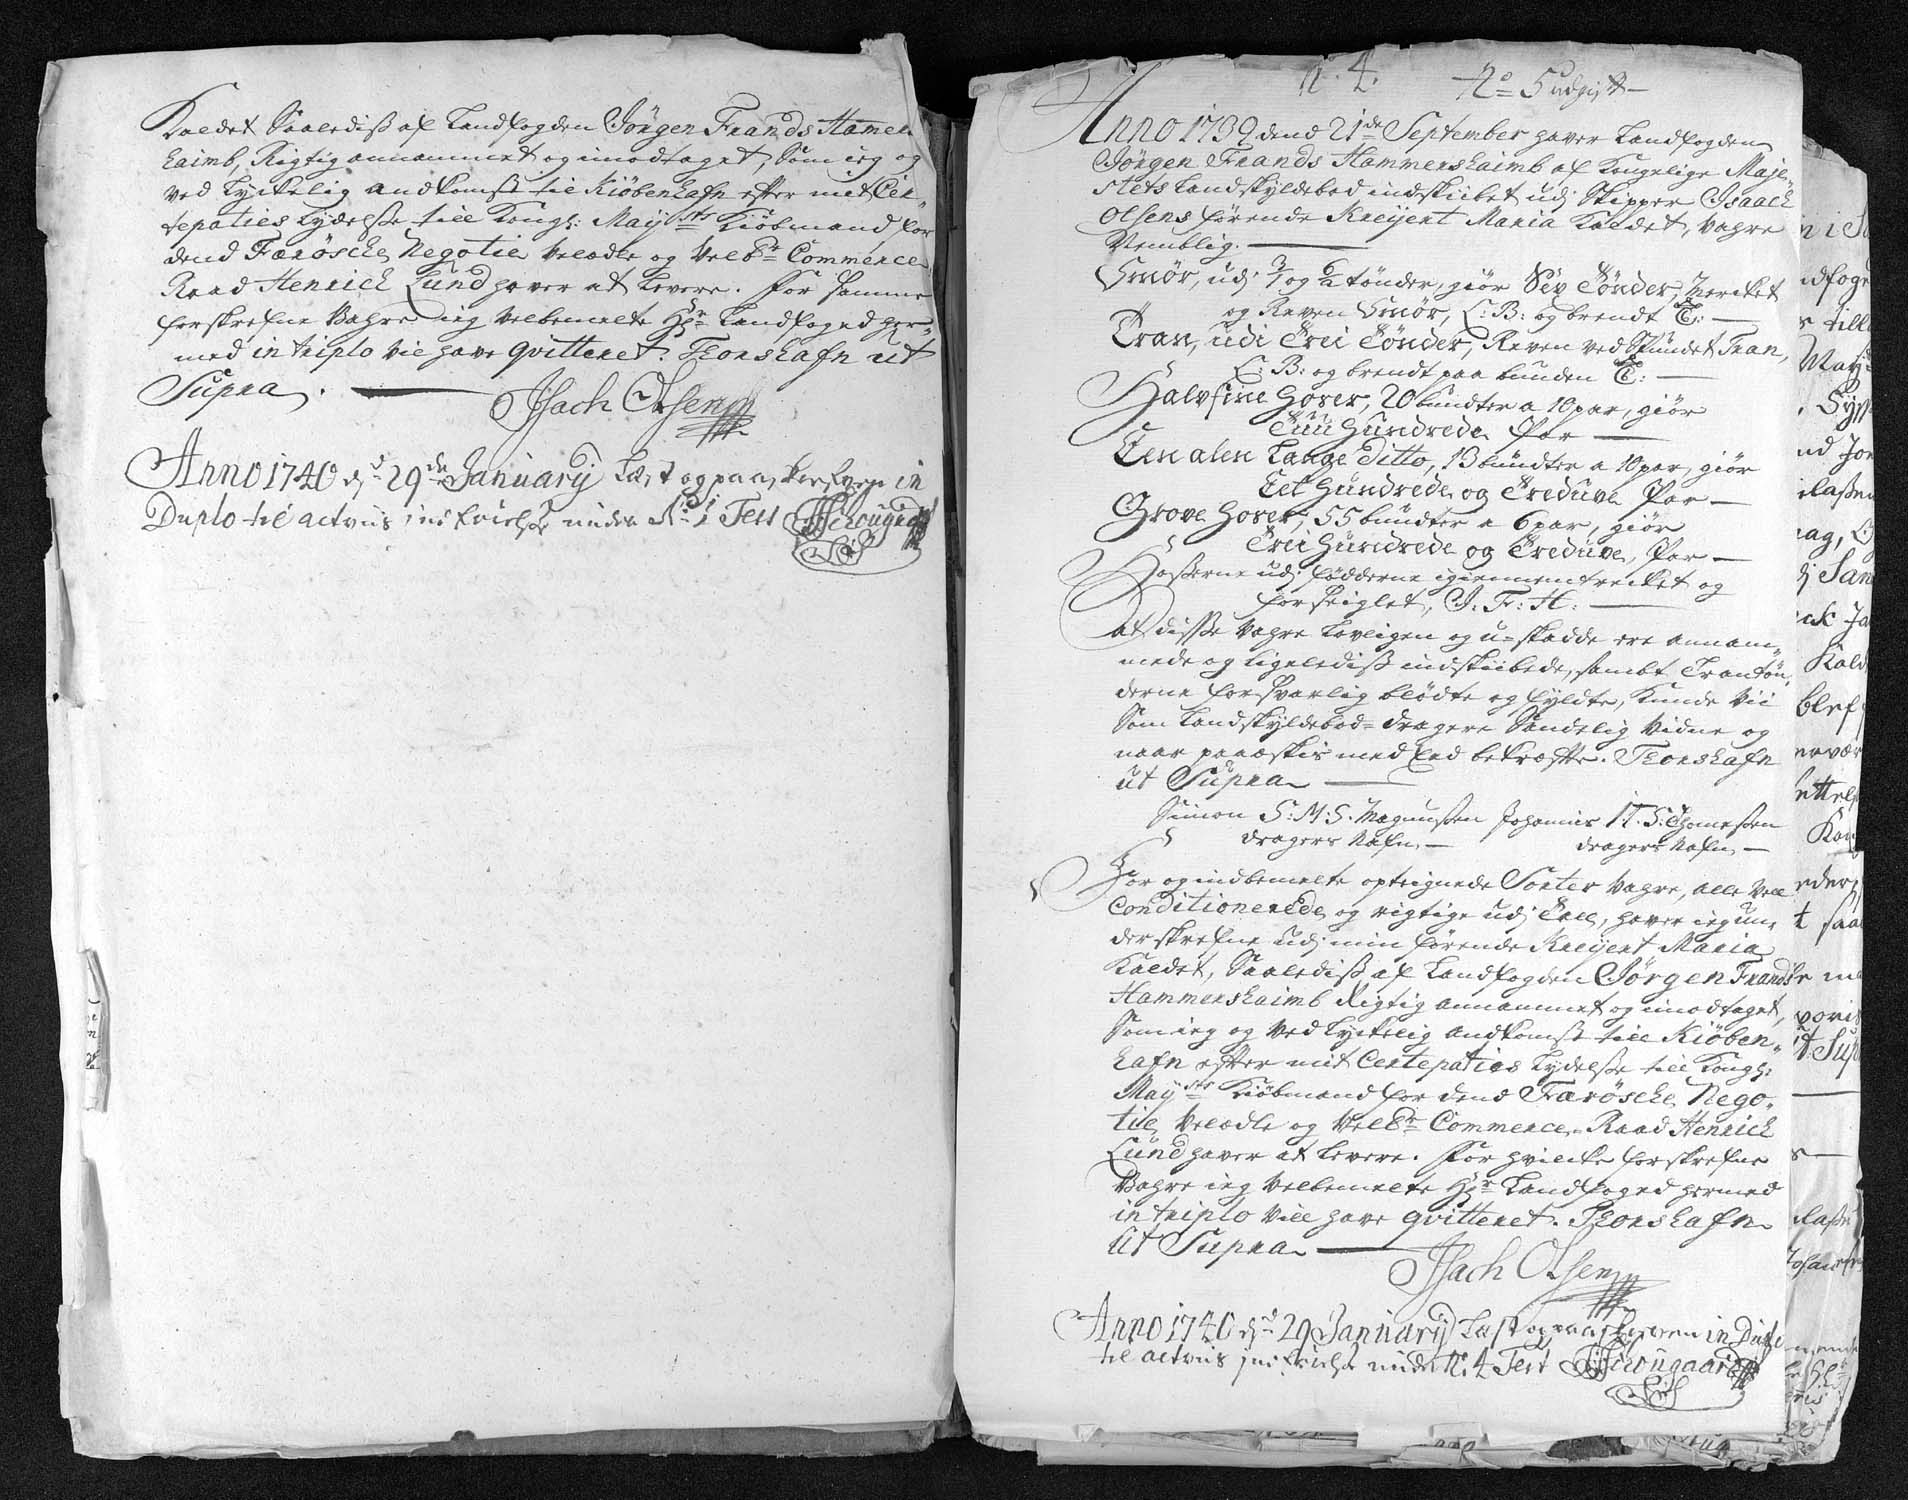 Kaldet Saalediß af Landfogden Jörgen Frands Hammers
haimb, Rigtig annammet og imodtaget, Som ieg og
ved Lyckelig andkomst til Kiöbenhafn efter mit Cer
tepaties Lydelße till Kongl: May:sts Kiöbmand for
dend Færösche Negotie Velædle og Velb:r Commerce
Raad Henrich Lund haver at Levere. For samme
forskrefne Vahre ieg Velbemelte Hr: Landfoged her
med in triplo vil have qvitteret. Thorshafn ut
Supra.
Isach Olsen
Anno 1740 d: 29de January Læst og paaskrefven in
Duplo til actens under No: Test
N:o 4. No 5 udgift
Anno 1739 dend 21de September haver Landfogden
Jörgen Frands Hammershaimb af Kongelige Maje-
stets Landskyldebod indskibet udj Skipper Isaach
Olsens förende Kreijert Maria Kaldet, Vahre
Nemblig.
Smör, udj 3/1 og 6/2 tönder, giör Sex Tönder, Mercket
og Reven Smör, L: B: og brendt C:
Tran, udi Trei Tönder, Reven ved Spundet Tran,
L: B: og brendt paa bunden C:
Halvfine Hoser, 20 bundter a 10 par, giör
Tuu Hundrede Par
Een alen Lange Ditto, 13 bundter a 10 par, giör
Eet Hundrede og Tredive Par
Grove Hoser, 55 bundter a 6 par, giör
Trei Hundrede og Tredive Par
Hoßerne udj födderne igiennemtrecket og
forseiglet, J: F: H:
at diße Vahre Lovligen og u-skadde ere annam-
mede og Ligelediß indskibede, sambt Trantön-
derne forsvarlig blödte og fyldte, Kunde Vii
Som Landskyldebod-dragere Sandelig Vidne og
naar paaæskis med Eed bekræfte. Thorshafn
ut Supra
Simon S: M: S: Magnußen Johannis I T: S: Thomeßen
dragers Nafn, dragers Nafn,
For og indbemelte opteignede Sorter Vahre, alle Vell
Conditionerede og rigtige udj Tall, haver ieg un-
derskrefne udj min förende Kreijert Maria
Kaldet, Saalediß af Landfogden Jörgen Frands
Hammershaimb Rigtig annammet og imodtaget,
Som ieg og Ved Lyckelig andkomst till Kiöben-
hafn efter mit Certepaties Lydelße till Kongl:
May:sts Kiöbmand for dend Færösche Nego-
tie, Velædle og Velb:r Commerce-Raad Henrich
Lund haver at Levere. For hvilcke forskrefne
Vahre ieg Velbemelte Hr: Landfoged hermed
in triplo Vill have qvitteret. Thorshafn
ut Supra
Isach Olsen
Anno 1740 d: 29 January Læst og paaskreven in Duplo
til actens under No: 4 Test